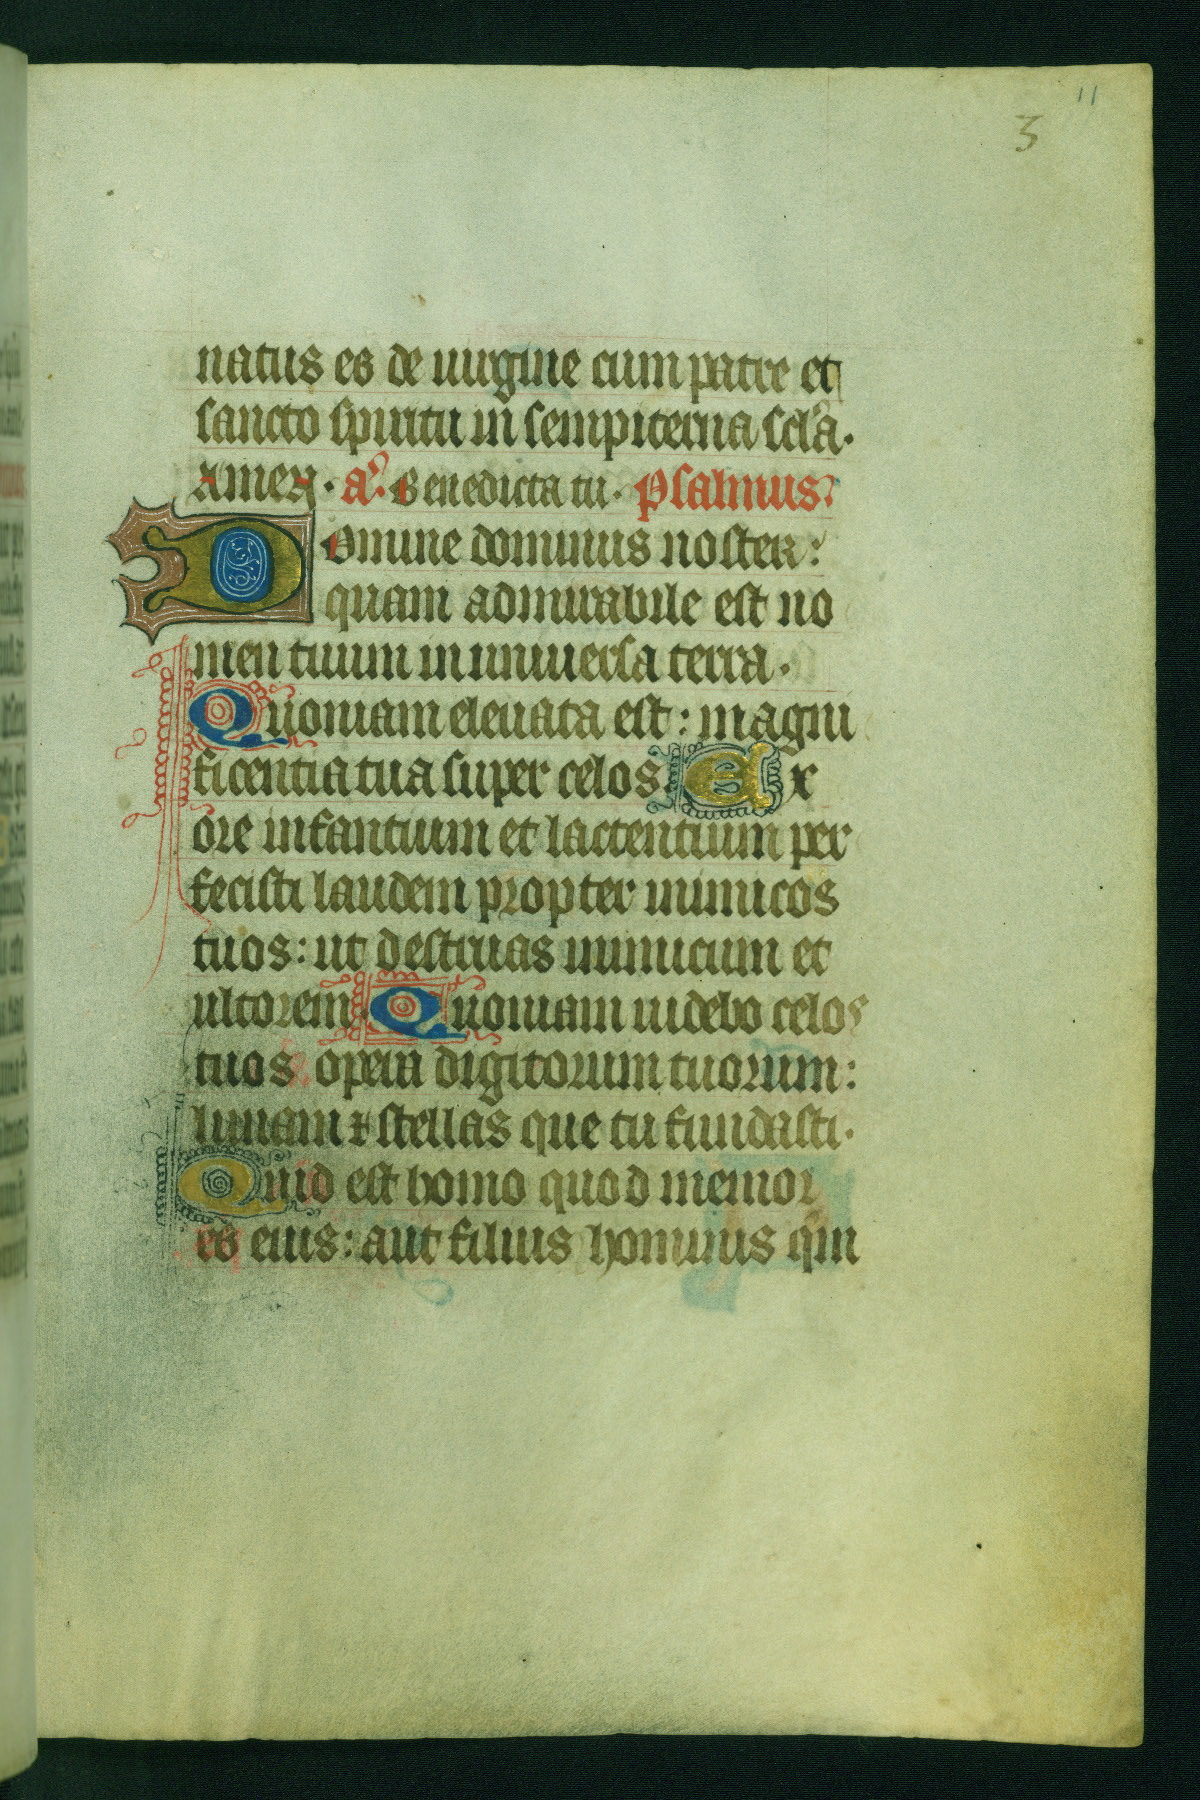 11
3
natus es de uirgine cum patre et
sancto spiritu in sempiterna scl'a.
Amen. a'. Benedicta tu. Psalmus.
Domine dominus noster:
quam admirabile est no
men tuum in uniuersa terra.
Quoniam eleuata est: magni
ficentia tua super celos Ex
ore infantium et lactentium per
fecisti laudem propter inimicos
tuos: ut destruas inimicum et
ultorem Quoniam uidebo celos
tuos opera digitorum tuorum:
lunam ⁊ stellas que tu fundasti.
Quid est homo quod memor
es eius: aut filius hominis qui